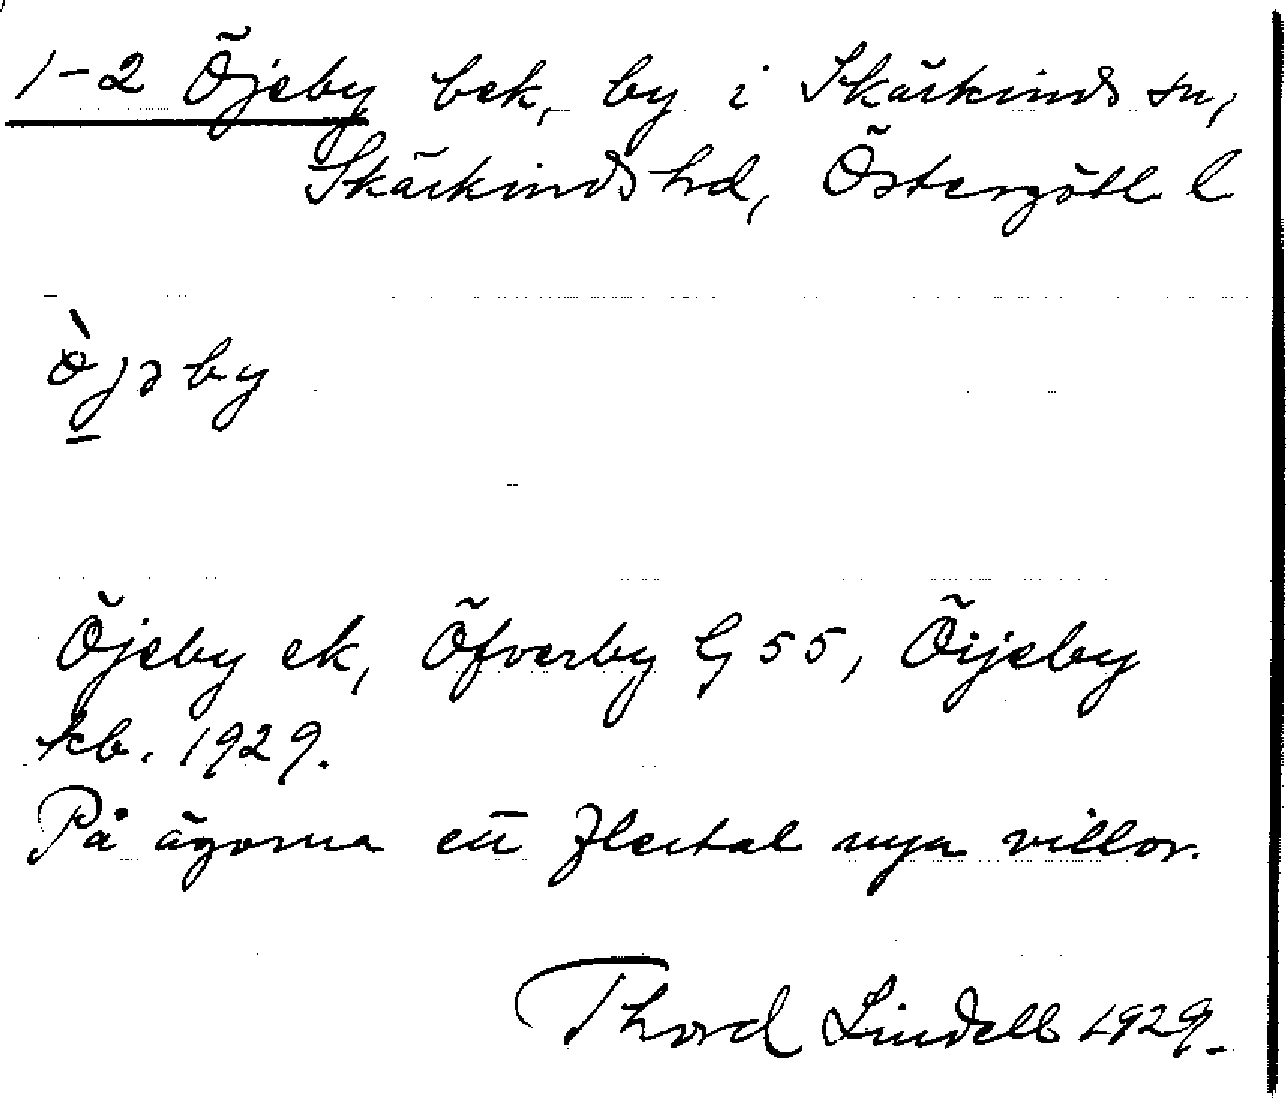 1-2 Öjeby bek, by i Skärkinds sn,
Skärkinds hd, Östergötl l
ò̱jəby
Öjeby ek, Öfverby G 55, Öijeby
kb. 1929.
På ägorna ett flertal nya villor.
Thord Lindell 1929.